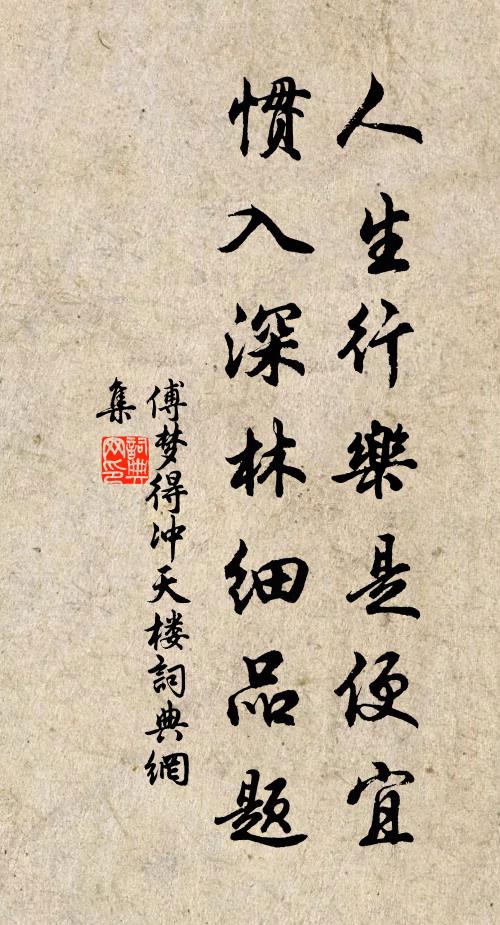 人生行樂是便宜
慣入深林细品题
傅梦得冲天楼詞典網
集
詞典
网印